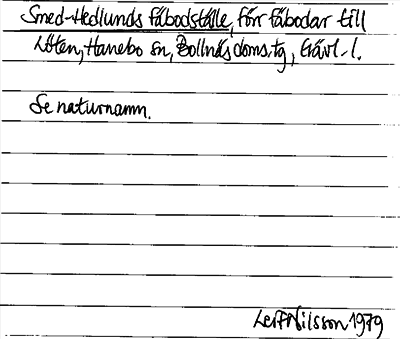 Smed-Hedlunds fäbodställe, förr fäbodar till
Löten, Hanebo sn, Bollnäs doms.tg, Gävl. l.
Se naturnamn.
Leif Nilsson 1979